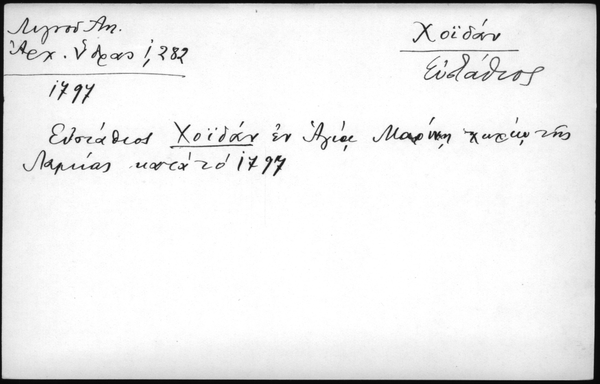 Λιγνοῦ Ἀν.
Ἀρχ. Ὕδρας 1, 282
1797
Χοϊδάν
Εὐστάθιος
Εὐστάθιος Χοϊδάν ἐν Ἁγίᾳ Μαρίνῃ χωρίῳ τῆς
Λαμίας κατά τό 1797